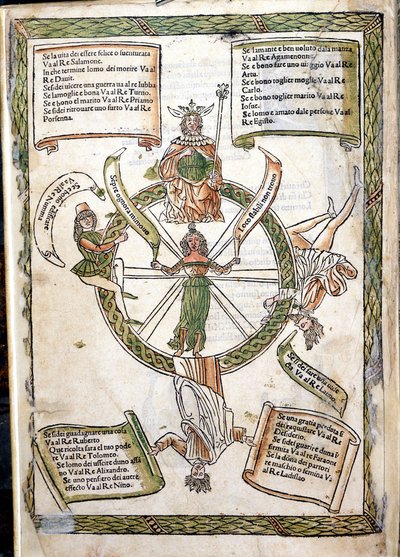 Se la vita dei essere felice o suenturata
Va al Re Salamone.
In che termine lomo dei morire Va al
Re Dauit.
Se si dei uicere una guerra ua al re Iubba
Se la moglie e bona Va al Re Turno.
Se e bono el marito Va al Re Priamo
Se si dei ritrouare uno furto Va al Re
Porsenna.
Se lamante e ben uoluto dala manza
Va al Re Agamenone.
Se e bono fare uno uiaggio Va al Re
Artu.
Se e bono toglier moglie Va al Re
Carlo.
Se e bono toglier marito Va al Re
Iosue.
Se lomo e amato dale persone Va al
Re Egisto.
Se e bono edificare
Va al Re Numma
Sepre ognora mi mouo
Loco stabili non trouo
Se si dei fare una
Va al Re
Se si dei guadagnare una cosa
Va al Re Ruberto
Que ricolta fara el tuo pode
re Va al Re Tolomeo.
Se lomo dei uscire duno affã
no Va al Re Alixandro.
Se uno pensiero dei auere
effecto Va al Re Nino.
Se una gratia perduta se
dei raquistare Va al Re
Desiderio.
Se si dei guarire duna in
firmita Va al re Faraone
Se la dõna dei parturi
re maschio o femina Va
al Re Ladislao